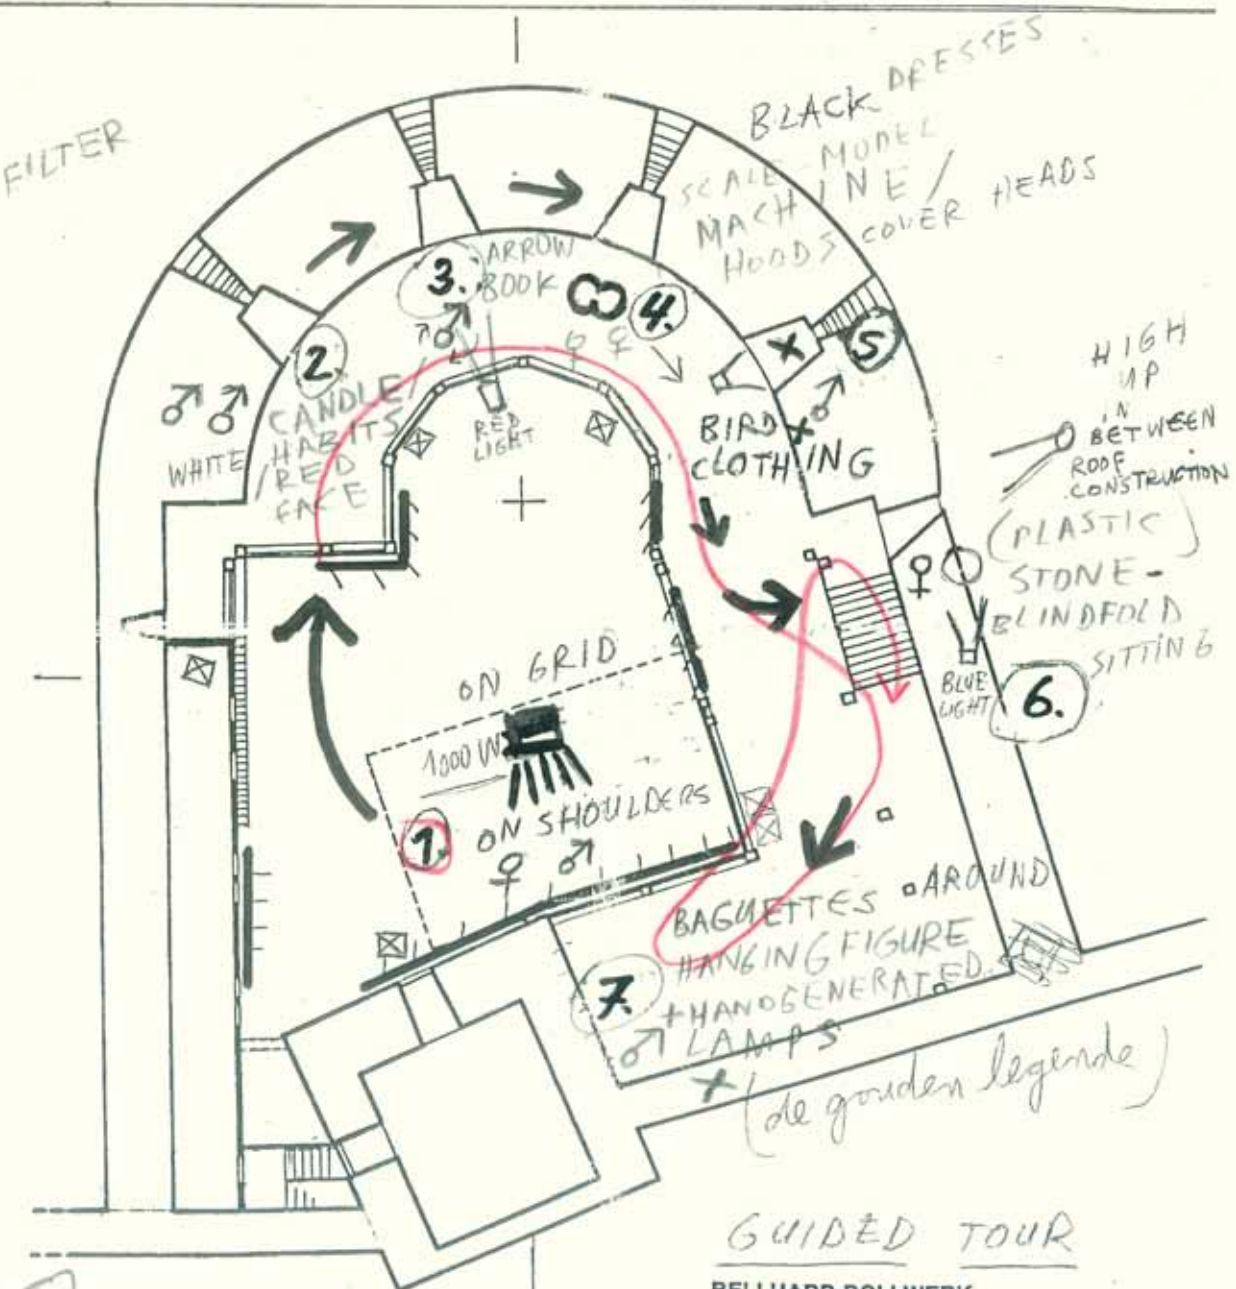 FILTER
BLACK DRESSES
SCALE MODEL
MACHINE/
HOODS COVER HEADS
3. ARROW
BOOK
4.
5
2
CANDLE/
HABITS
WHITE / RED
FACE
RED
LIGHT
BIRD
CLOTHING
HIGH
UP
IN
BETWEEN
ROOF
CONSTRUCTION
(PLASTIC)
STONE-
BLINDFOLD
SITTING
BLUE
LIGHT
6.
ON GRID
1000 W
1. ON SHOULDERS
BAGUETTES AROUND
HANGING FIGURE
7. + HANDGENERATED
LAMPS
(de gouden legende)
GUIDED TOUR